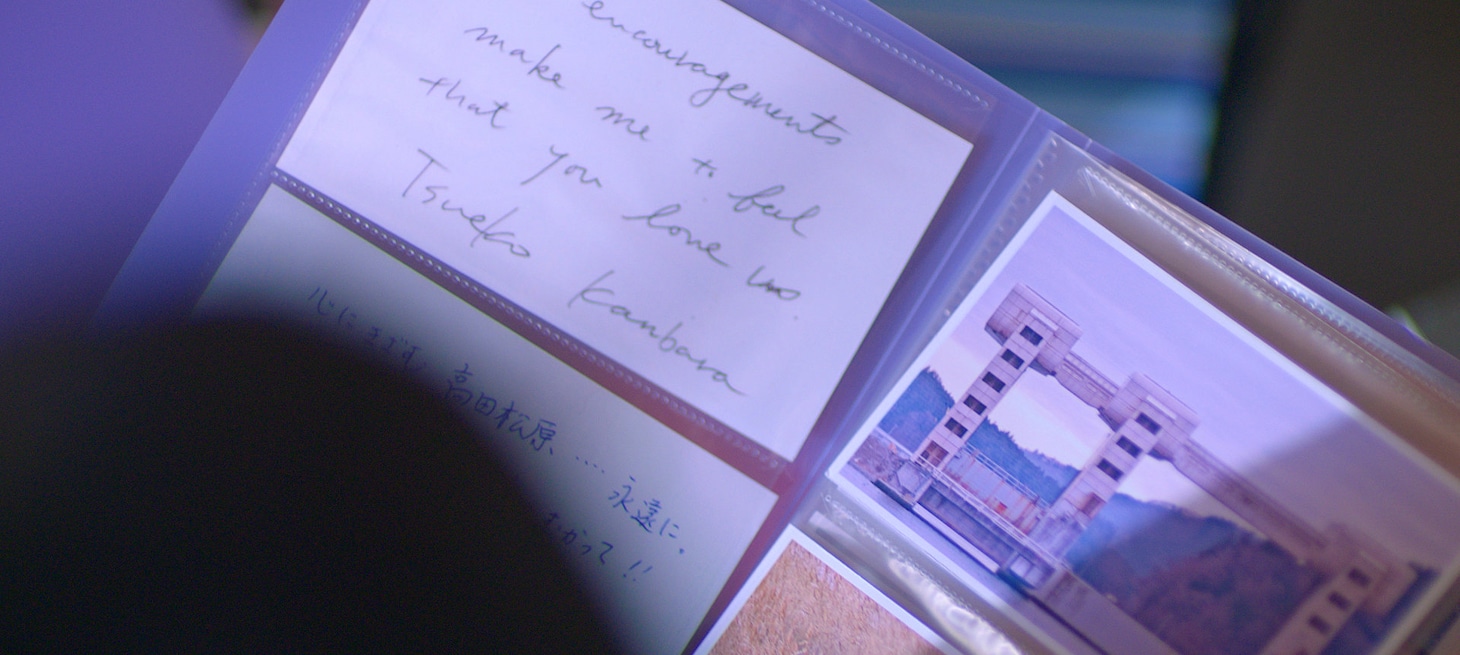 encouragements
make me to feel
that you love us.
Tsueko Kanbara
心にきざむ 高田松原 .... 永遠に。
むかって!!